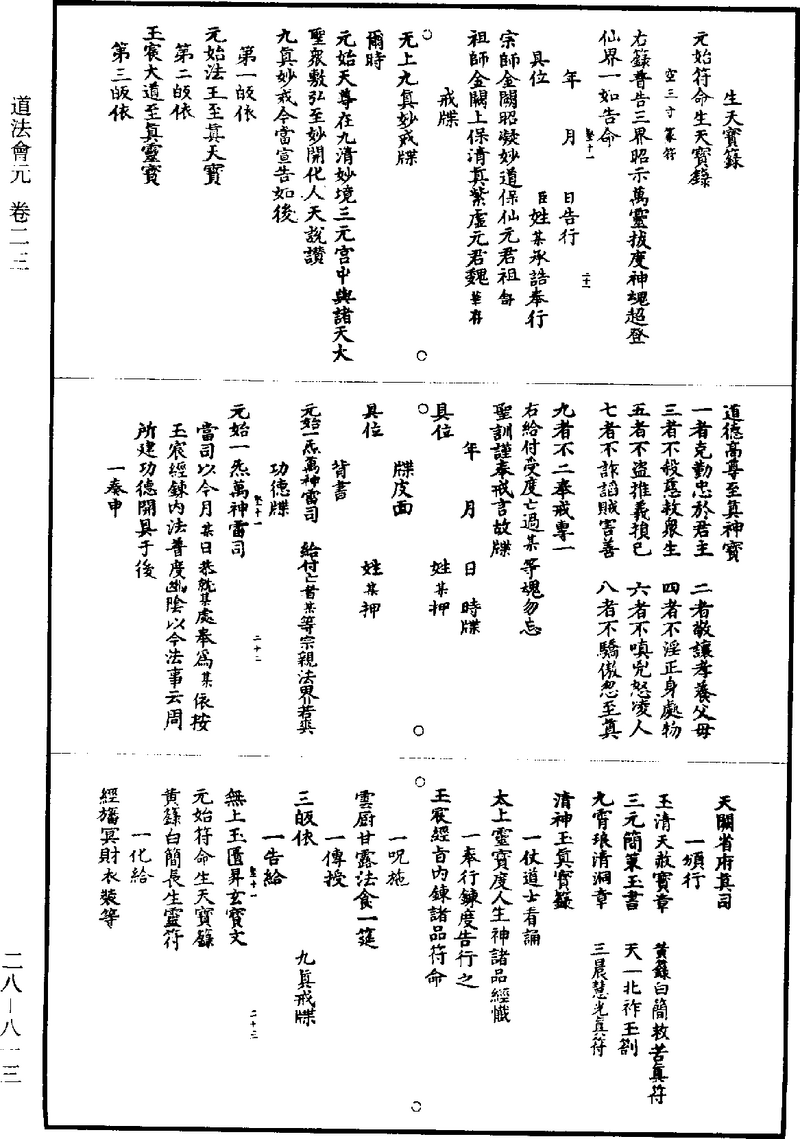 道法會元 卷二三
生天寶籙
元始符命生天寶籙
空三寸篆符
右籙普告三界昭示萬靈拔度神魂超登
仙界一如告命
年 月 日告行
具位 臣姓某承誥奉行
宗師金闕昭凝妙道保仙元君祖舒
祖師金闕上保清真紫虛元君魏華存
戒牒
无上九真妙戒牒
爾時
元始天尊在九清妙境三元宮中與諸天大
聖衆敷弘至妙開化人天說讚
九真妙戒今當宣告如後
第一皈依
元始法王至真天寶
第二皈依
玉宸大道至真靈寶
第三皈依
道德高尊至真神寶
一者克勤忠於君主 二者敬讓孝養父母
三者不殺慈救衆生 四者不淫正身處物
五者不盜推義損己 六者不嗔兇怒凌人
七者不詐諂賊害善 八者不驕傲忽至真
九者不二奉戒專一
右給付受度亡過某等魂勿忘
聖訓謹奉戒言故牒
年 月 日 時牒
具位 姓某押
牒皮面
具位 姓某押
背書
元始一炁萬神雷司 給付亡者某等宗親法界若爽
功德牒
元始一炁萬神雷司
當司以今月某日恭就某處奉爲某依按
玉宸經鍊內法普度幽陰以今法事云周
所建功德開具于後
一奏申
天闕省府真司
一頒行
玉清天赦寶章 黃籙白簡救苦真符
三元簡策玉書 天一北祚玉劄
九霄琅清洞章 三晨慧光真符
清神玉真寶籙
一仗道士看誦
太上靈寶度人生神諸品經懺
一奉行鍊度告行之
玉宸經旨內鍊諸品符命
一呪施
雲厨甘露法食一筵
一傳授
三皈依 九真戒牒
一告給
無上玉匱昇玄寶文
元始符命生天寶籙
黃籙白簡長生靈符
一化給
經旛冥財衣裝等
二八—八一三